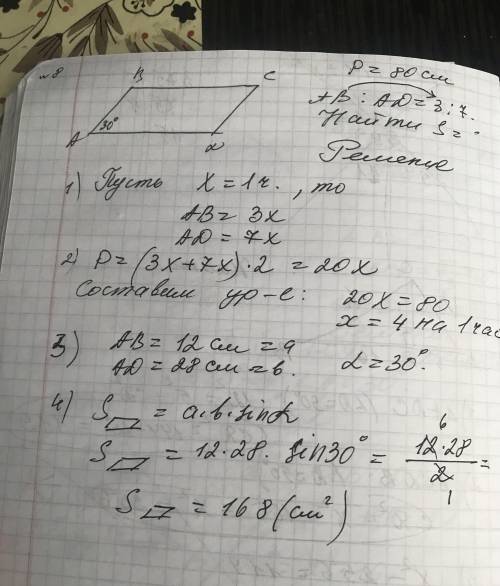 №8
B C
P = 80 см
AB : AD = 3 : 7.
Найти S = ?
A 30° d
Решение
1) Пусть X = 1 ч. , то
AB = 3x
AD = 7x
2) P = (3x + 7x) · 2 = 20x
Составим ур-е: 20x = 80
x = 4 на 1 час
3) AB = 12 см = a
AD = 28 см = b. α = 30°.
4) S▱ = a·b·sinα
S▱ = 12·28· sin30° = 12·28/2 =
6
1
S▱ = 168 (см²)